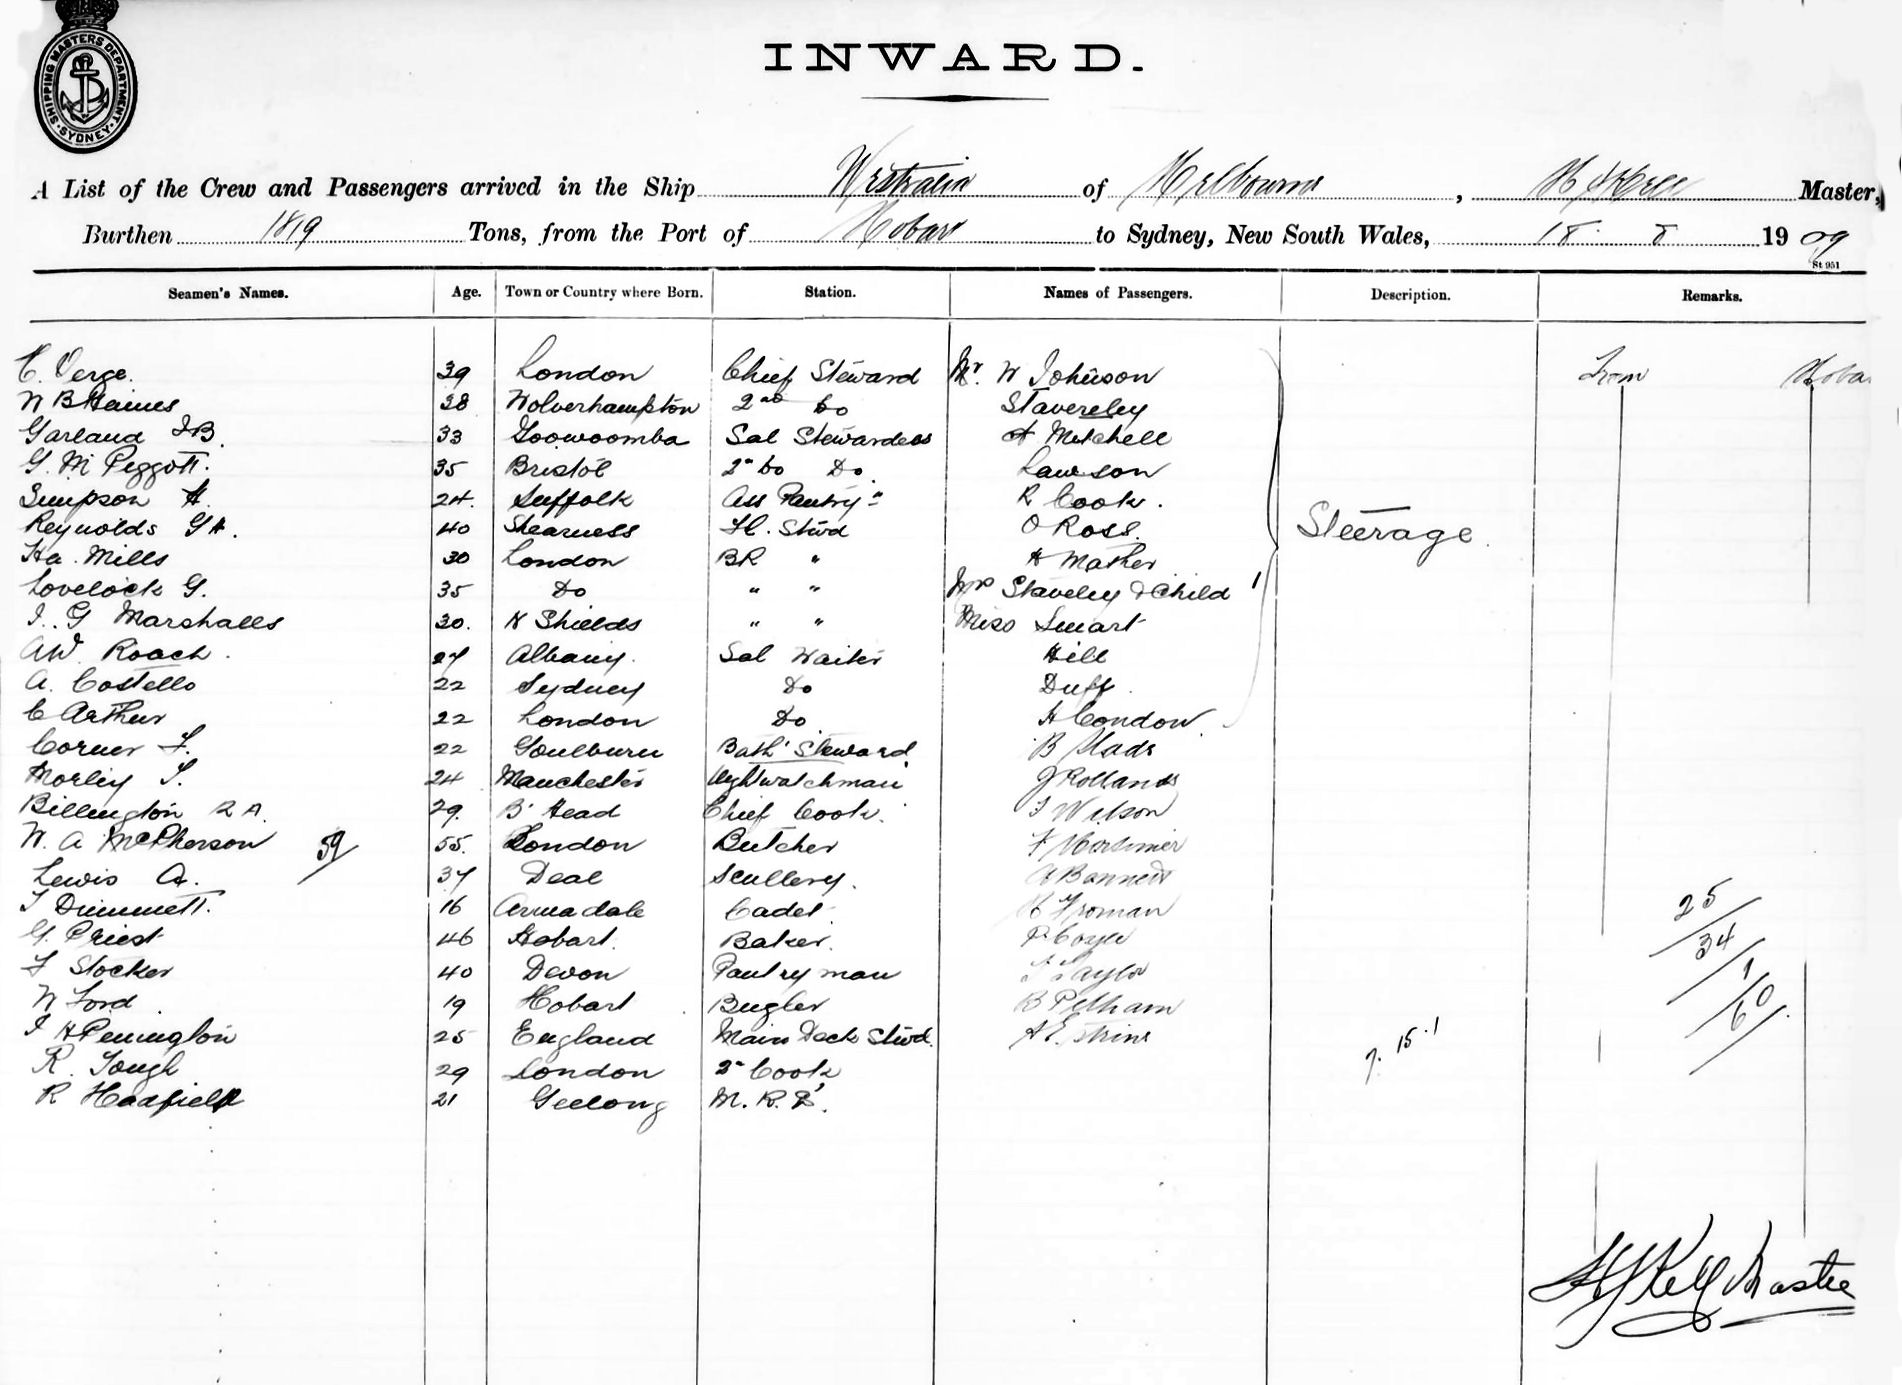 SHIPPING MASTERS DEPARTMENT
SYDNEY
INWARD.
A List of the Crew and Passengers arrived in the Ship Westralia of Melbourne, Master,
Burthen 1819 Tons, from the Port of Hobart to Sydney, New South Wales, 18 8 1909
St 951
Seamen's Names. Age. Town or Country where Born. Station. Names of Passengers. Description. Remarks.
C. Verge. 39 London Chief Steward Mr. W Johnson From Hobar
W B Haines 38 Wolverhampton 2nd Do Stavereley
Garland J B. 33 Toowoomba Sal Stewardess A Mitchell
G. M Piggott. 35 Bristol 2" Do Do Lawson
Simpson H. 24. Suffolk Ass Pantry " R Cook.
Reynolds G H. 40 Shearness Fl. Stwd O Ross. Steerage.
Ha. Mills 30 London BR " H Mather
Lovelock G. 35 Do " " Mrs Staveley & Child 1
J. G Marshalls 30. N Shields " " Miss Smart
A W Roach. 27 Albany. Sal Waiter Hill
A. Costello 22 Sydney Do Duff
C Arthur 22 London Do H Condow
Corner F. 22 Goulburn Bath Steward B Slade
Morley S. 24 Manchester Nightwatchman J Rollands
Billington R A. 29. B' Head Chief Cook. J Wilson
W. A McPherson 59 55. London Butcher F Mortimer
Lewis A. 37 Deal Scullery. A Bannett
T Dimmett. 16 Armadale Cadet H Froman 25
G. Priest 46 Hobart. Baker. P Coyle 34
F Stocker 40 Devon Pantryman Taylor 1
W Ford 19 Hobart Bugler B Pelham 60
J H Penington 25 England Main Deck Stwd. 7. 15. 1
R. Tough 29 London 2" Cook
R Hadfield 21 Geelong M. R. S.
H J Kell Master